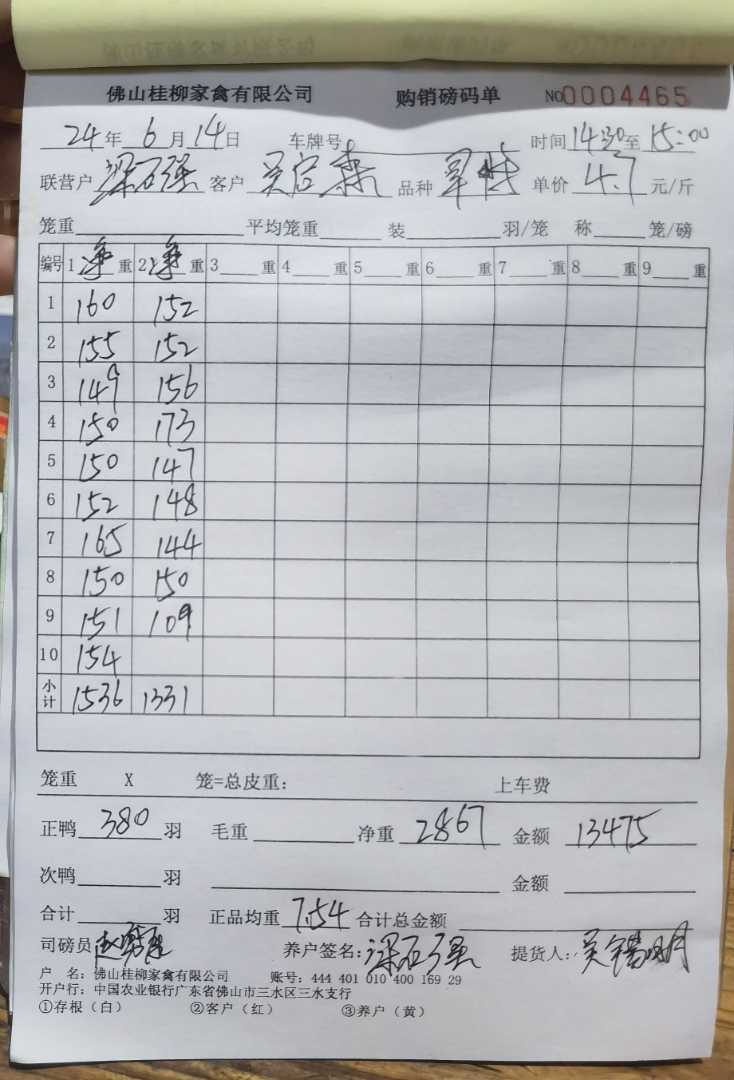 佛山桂柳家禽有限公司 购销磅码单 NO0004465
24年6月14日 车牌号 时间14:30至15:00
联营户 梁石强 客户 吴启森 品种 单价 4.7 元/斤
笼重 平均笼重 装 羽/笼 称 笼/磅
编号 1 净 重 2 净 重 3 重 4 重 5 重 6 重 7 重 8 重 9 重
1 160 152
2 155 152
3 149 156
4 150 173
5 150 147
6 152 148
7 165 144
8 150 150
9 151 109
10 154
小计 1536 1331
笼重 X 笼=总皮重: 上车费
正鸭 380 羽 毛重 净重 2867 金额 13475
次鸭 羽 金额
合计 羽 正品均重 7.54 合计总金额
司磅员 养户签名: 梁石强 提货人: 吴锡明
户 名: 佛山桂柳家禽有限公司 账号: 444 401 010 400 169 29
开户行: 中国农业银行广东省佛山市三水区三水支行
①存根（白） ②客户（红） ③养户（黄）